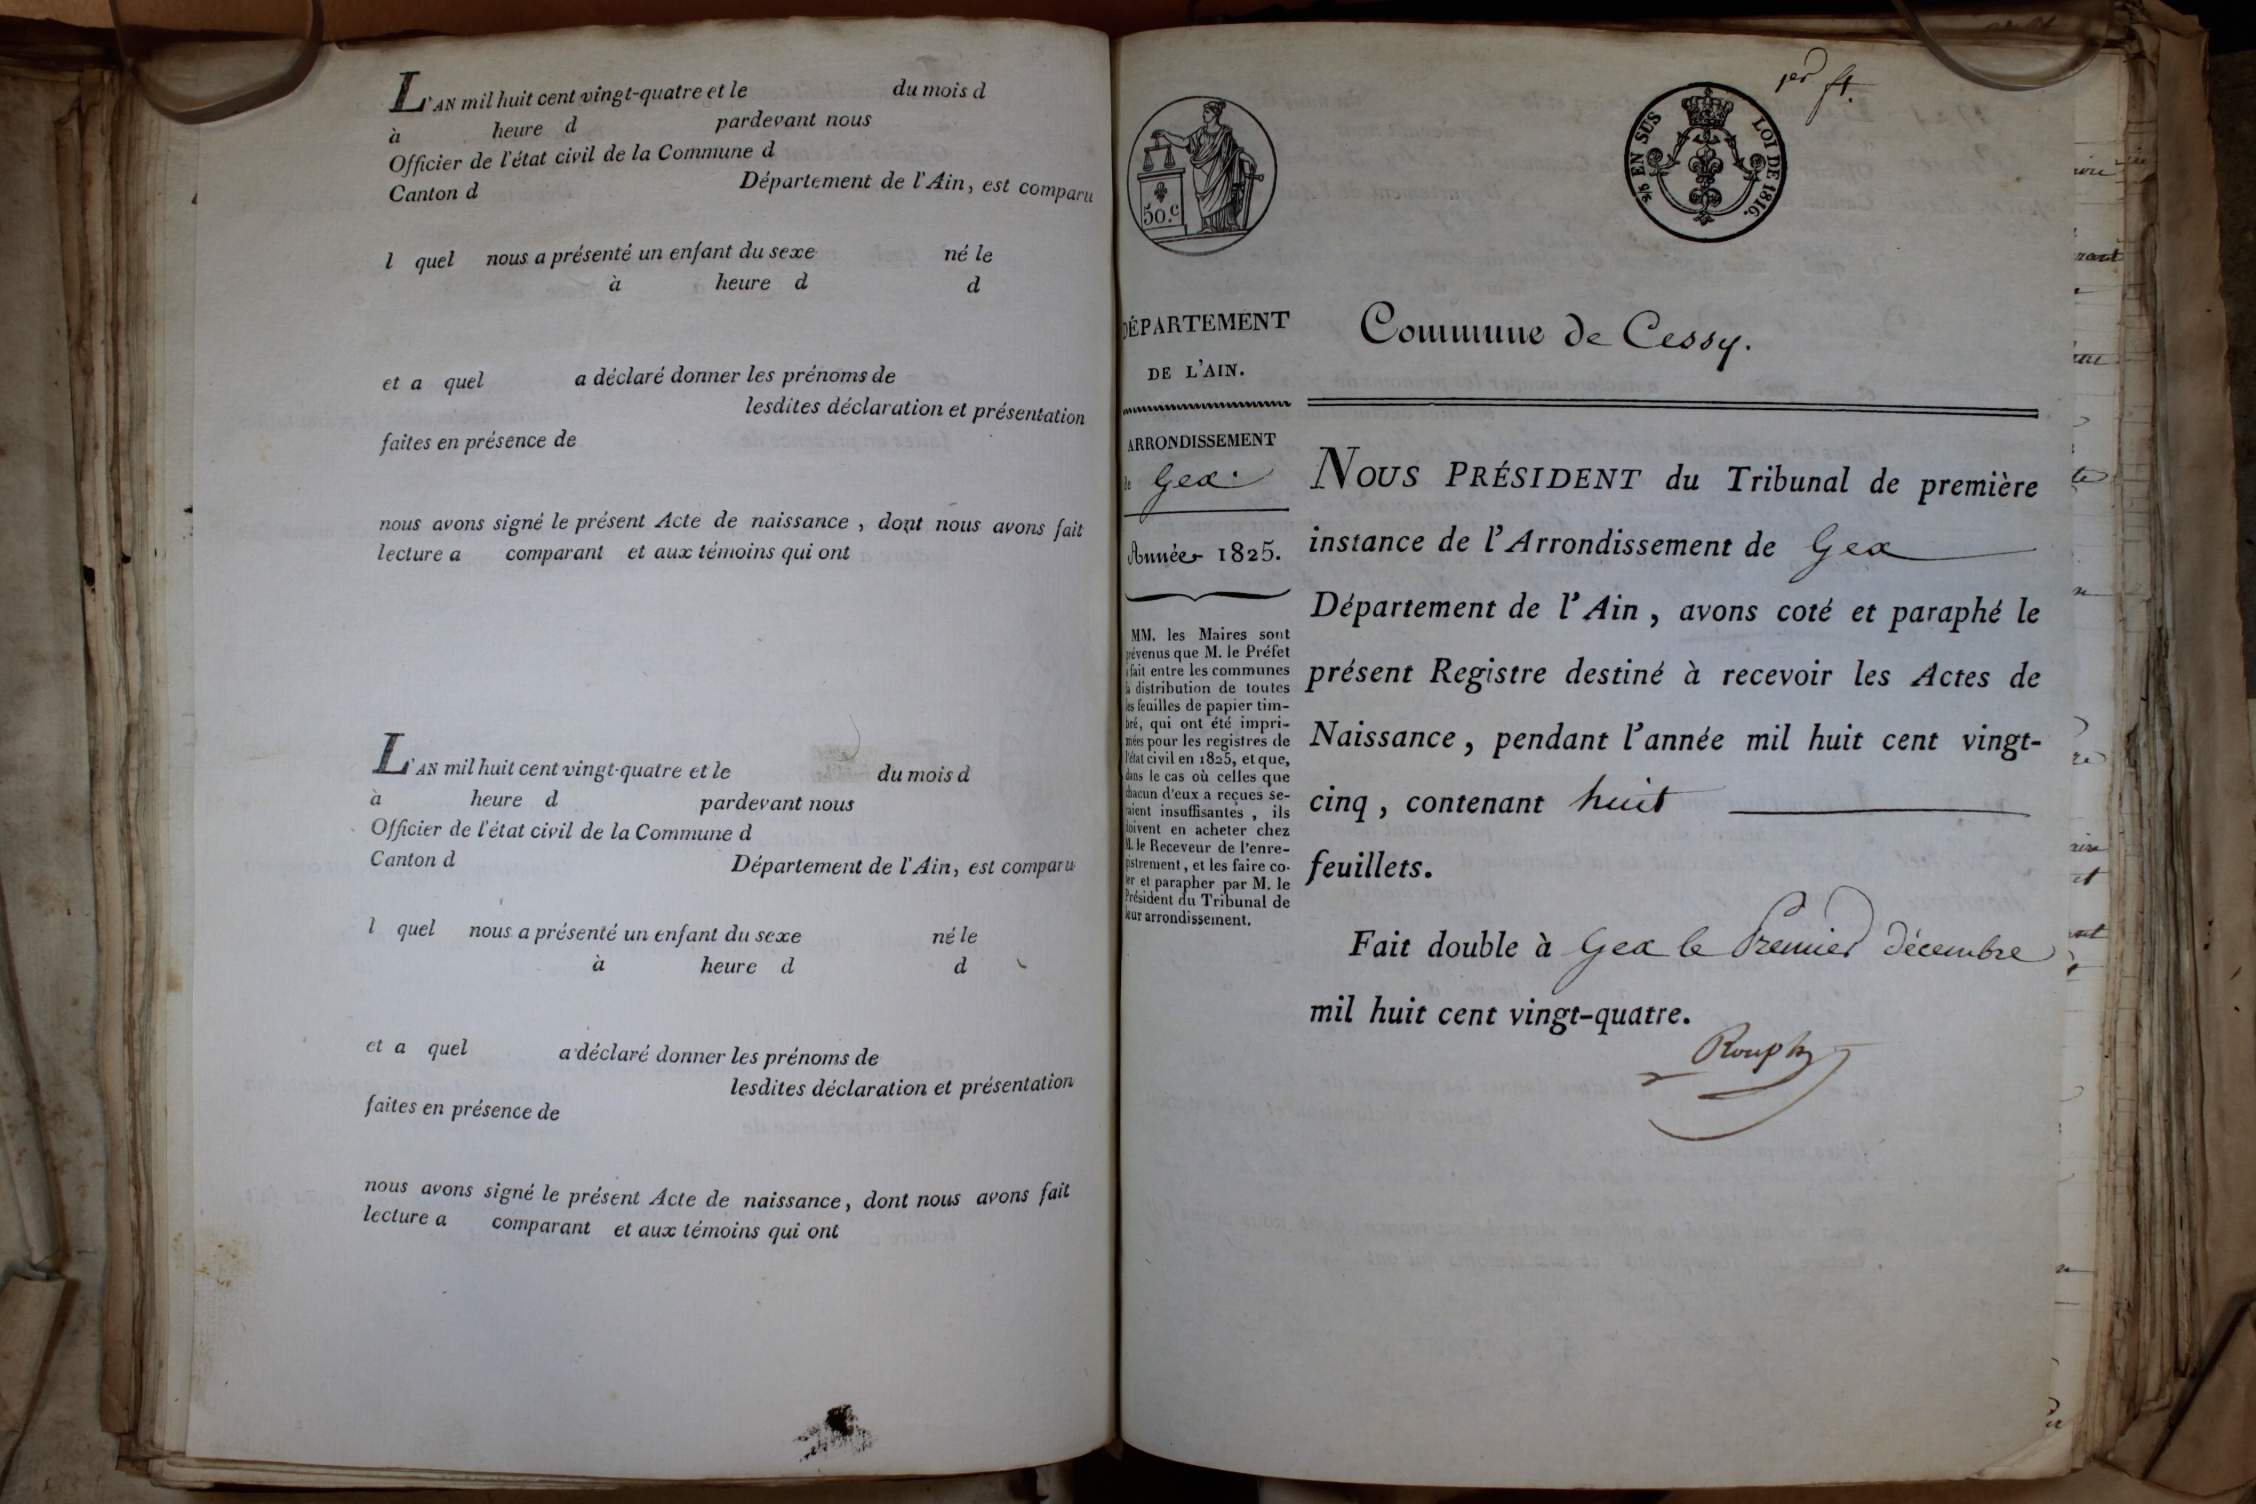 L'AN mil huit cent vingt-quatre et le du mois d
à heure d pardevant nous
Officier de l'état civil de la Commune d
Canton d Département de l'Ain, est comparu
l quel nous a présenté un enfant du sexe né le
à heure d d
et a quel a déclaré donner les prénoms de
lesdites déclaration et présentation
faites en présence de
nous avons signé le présent Acte de naissance, dont nous avons fait
lecture a comparant et aux témoins qui ont
L'AN mil huit cent vingt-quatre et le du mois d
à heure d pardevant nous
Officier de l'état civil de la Commune d
Canton d Département de l'Ain, est comparu
l quel nous a présenté un enfant du sexe né le
à heure d d
et a quel a déclaré donner les prénoms de
lesdites déclaration et présentation
faites en présence de
nous avons signé le présent Acte de naissance, dont nous avons fait
lecture a comparant et aux témoins qui ont
1er ft.
50.c
EN SUS
LOI DE 1816.
DÉPARTEMENT
DE L'AIN.
ARRONDISSEMENT
de Gex.
Année 1825.
MM. les Maires sont
prévenus que M. le Préfet
a fait entre les communes
la distribution de toutes
les feuilles de papier tim-
bré, qui ont été impri-
mées pour les registres de
l'état civil en 1825, et que,
dans le cas où celles que
chacun d'eux a reçues se-
raient insuffisantes, ils
doivent en acheter chez
M. le Receveur de l'enre-
gistrement, et les faire co-
ter et parapher par M. le
Président du Tribunal de
leur arrondissement.
Commune de Cessy.
NOUS PRÉSIDENT du Tribunal de première
instance de l'Arrondissement de Gex
Département de l'Ain, avons coté et paraphé le
présent Registre destiné à recevoir les Actes de
Naissance, pendant l'année mil huit cent vingt-
cinq, contenant huit
feuillets.
Fait double à Gex le Premier décembre
mil huit cent vingt-quatre.